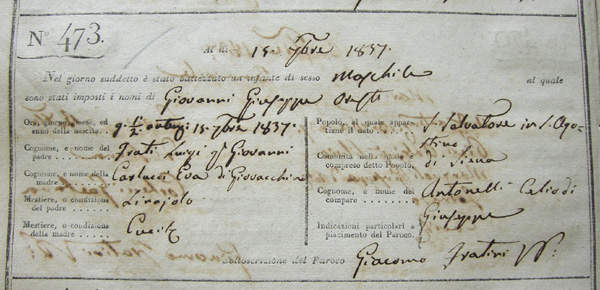 N.° 473.
A' dì 15. 9bre 1837.
Nel giorno suddetto è stato battezzato un infante di sesso Maschile al quale
sono stati imposti i nomi di Giovanni Giuseppe Oreste
Ora, giorno, mese, ed
anno della nascita. 15. 9bre 1837.
Cognome, e nome del
padre Frati Luigi Giovanni
Cognome, e nome della
madre Carlucci Eva di Giovacchino
Mestiere, o condizione
del padre
Mestiere, o condizione
della madre Cucit.
Popolo, al quale appar-
tiene il nato S. Salvatore in S. Ago-
stino
Comunità nella quale è
compreso detto Popolo. di Siena
Cognome, e nome del
compare Antonelli Celio di
Giuseppe
Indicazioni particolari a
piacimento del Paroco.
Sottoscrizione del Paroco Giacomo Fratini